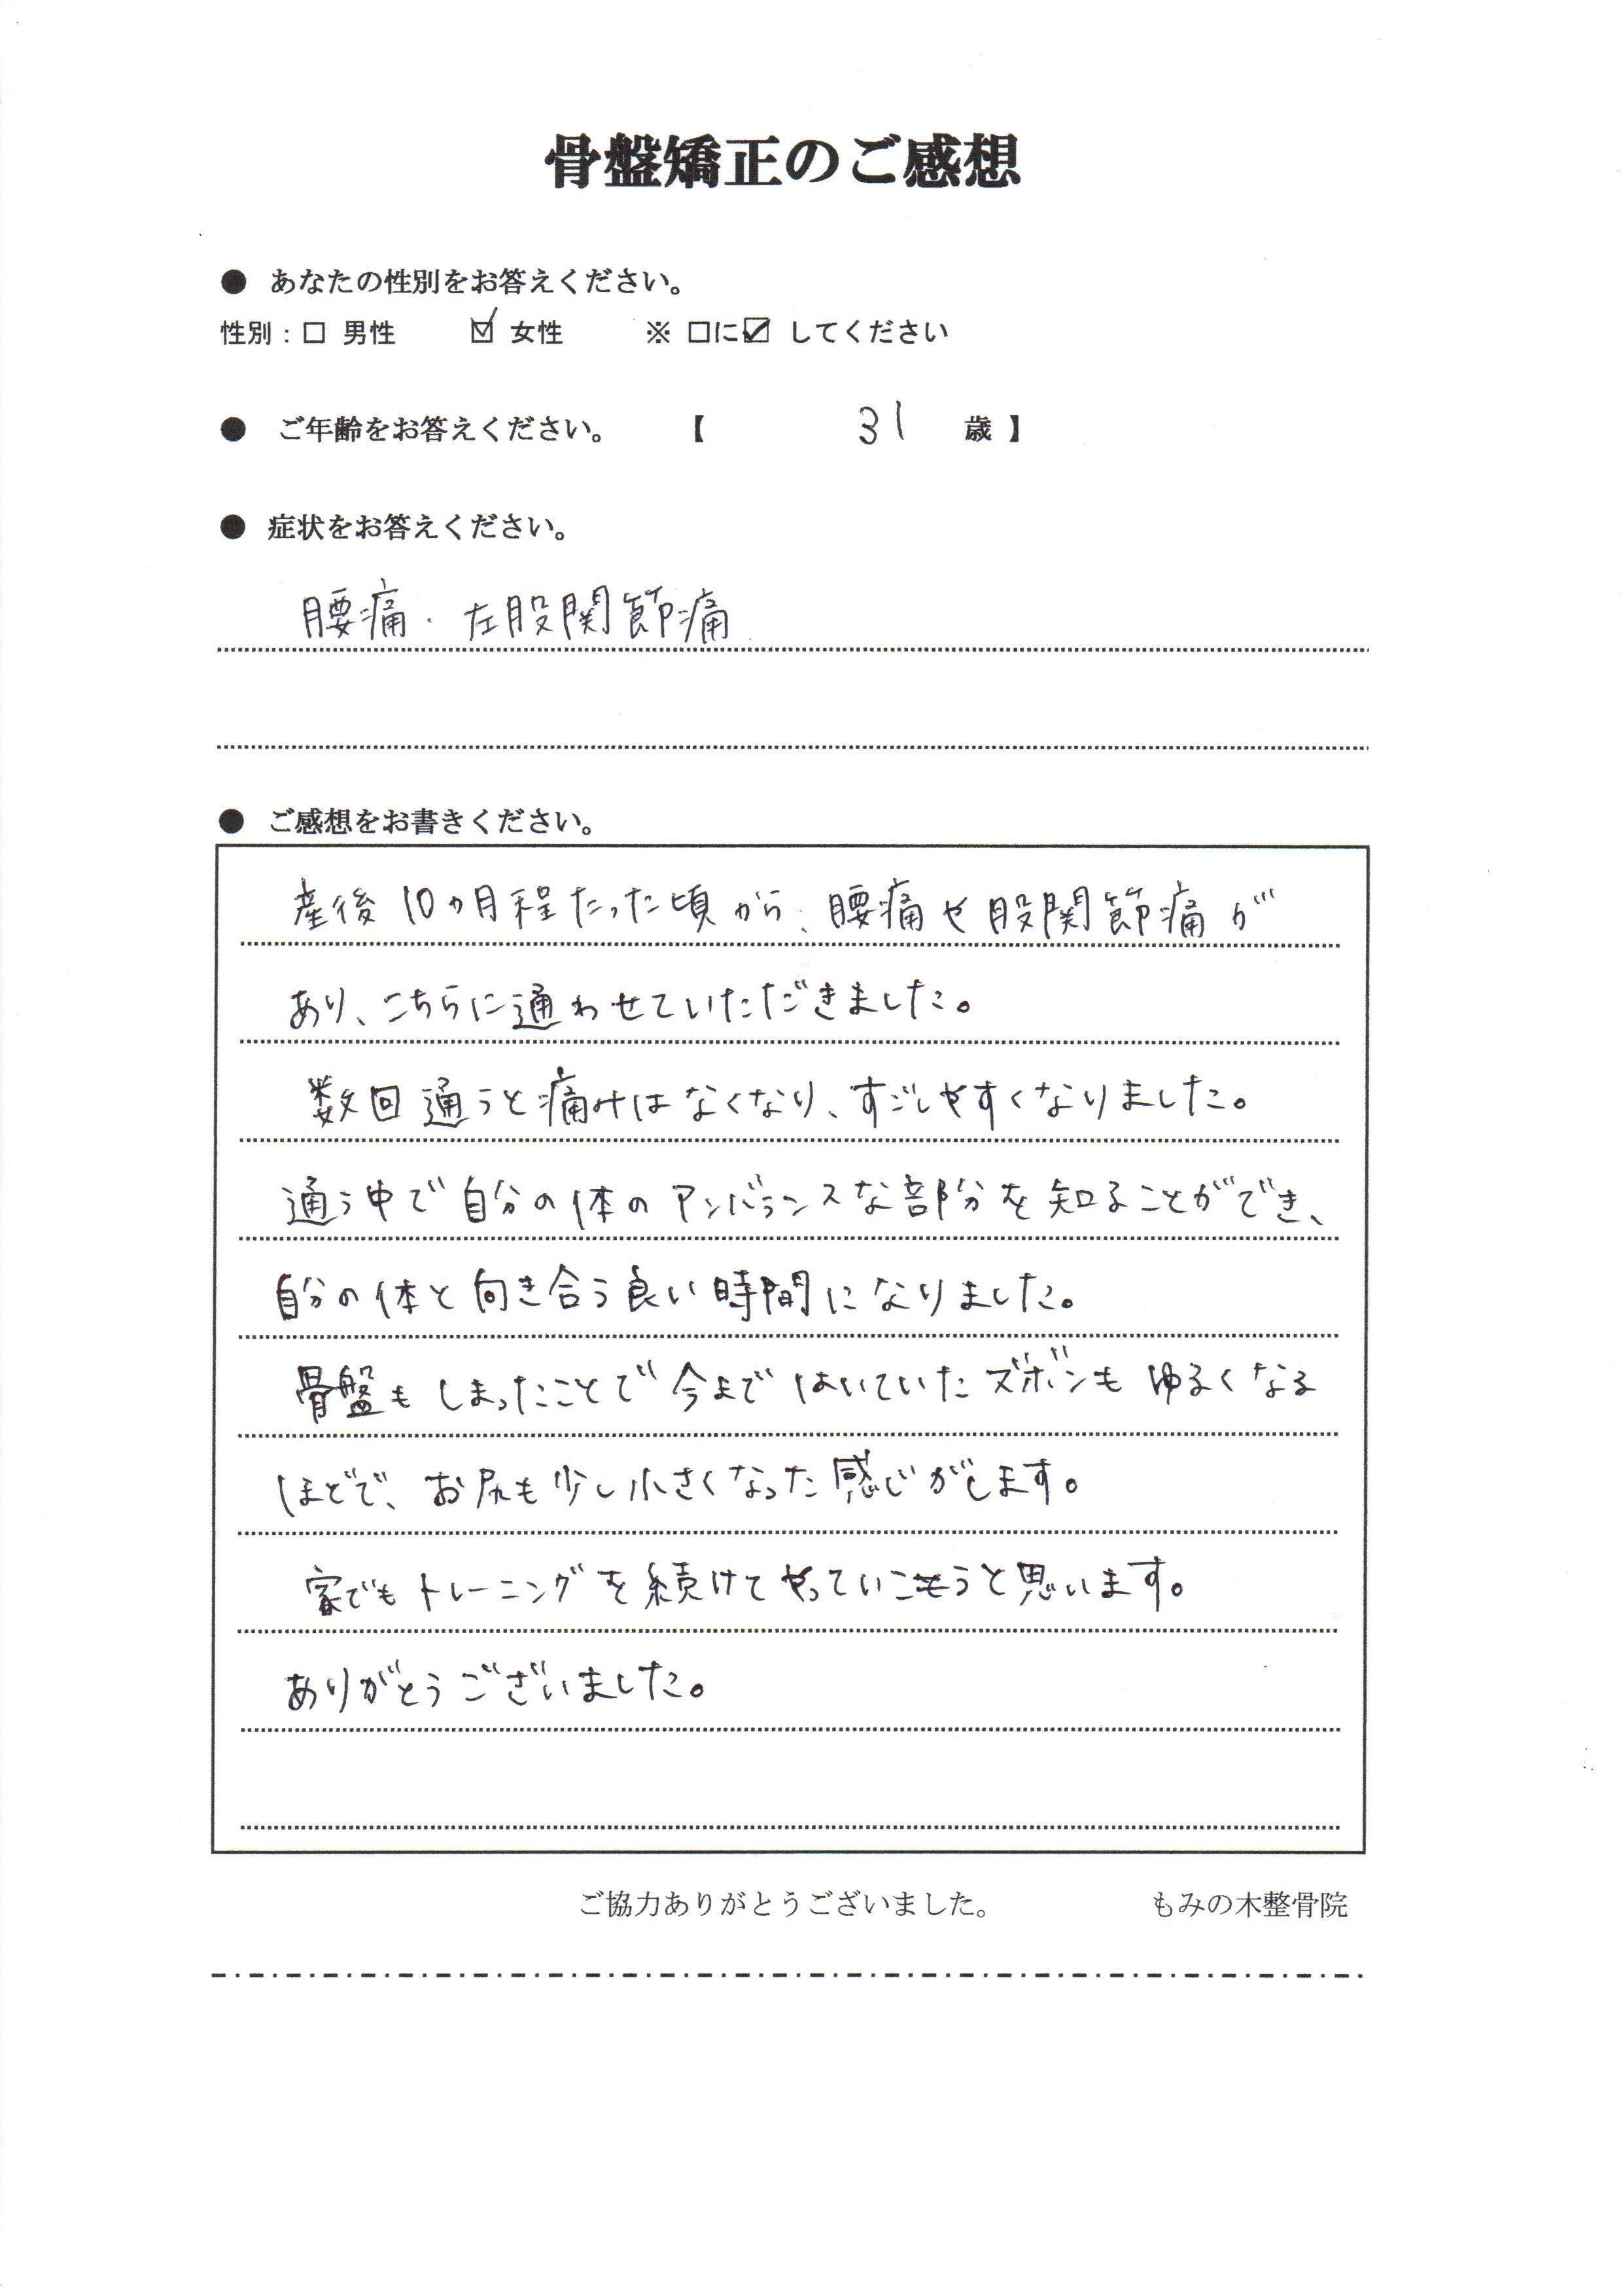 骨盤矯正のご感想
● あなたの性別をお答えください。
性別：□ 男性 ☑ 女性 ※ □に☑ してください
● ご年齢をお答えください。 【 31 歳 】
● 症状をお答えください。
腰痛・左股関節痛
● ご感想をお書きください。
産後10ヵ月程たった頃から、腰痛や股関節痛が
あり、こちらに通わせていただきました。
数回通うと痛みはなくなり、すごしやすくなりました。
通う中で自分の体のアンバランスな部分を知ることができ、
自分の体と向き合う良い時間になりました。
骨盤もしまったことで今まではいていたズボンもゆるくなる
ほどで、お尻も少し小さくなった感じがします。
家でもトレーニングを続けてやっていこうと思います。
ありがとうございました。
ご協力ありがとうございました。 もみの木整骨院